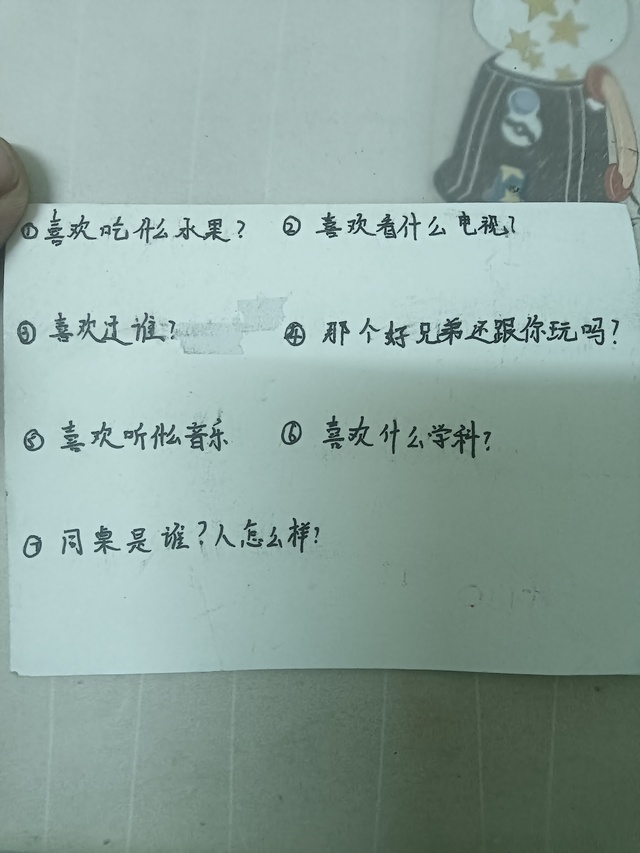 ①喜欢吃什么水果? ②喜欢看什么电视?
③喜欢过谁? ④那个好兄弟还跟你玩吗?
⑤喜欢听什么音乐 ⑥喜欢什么学科?
⑦同桌是谁?人怎么样?